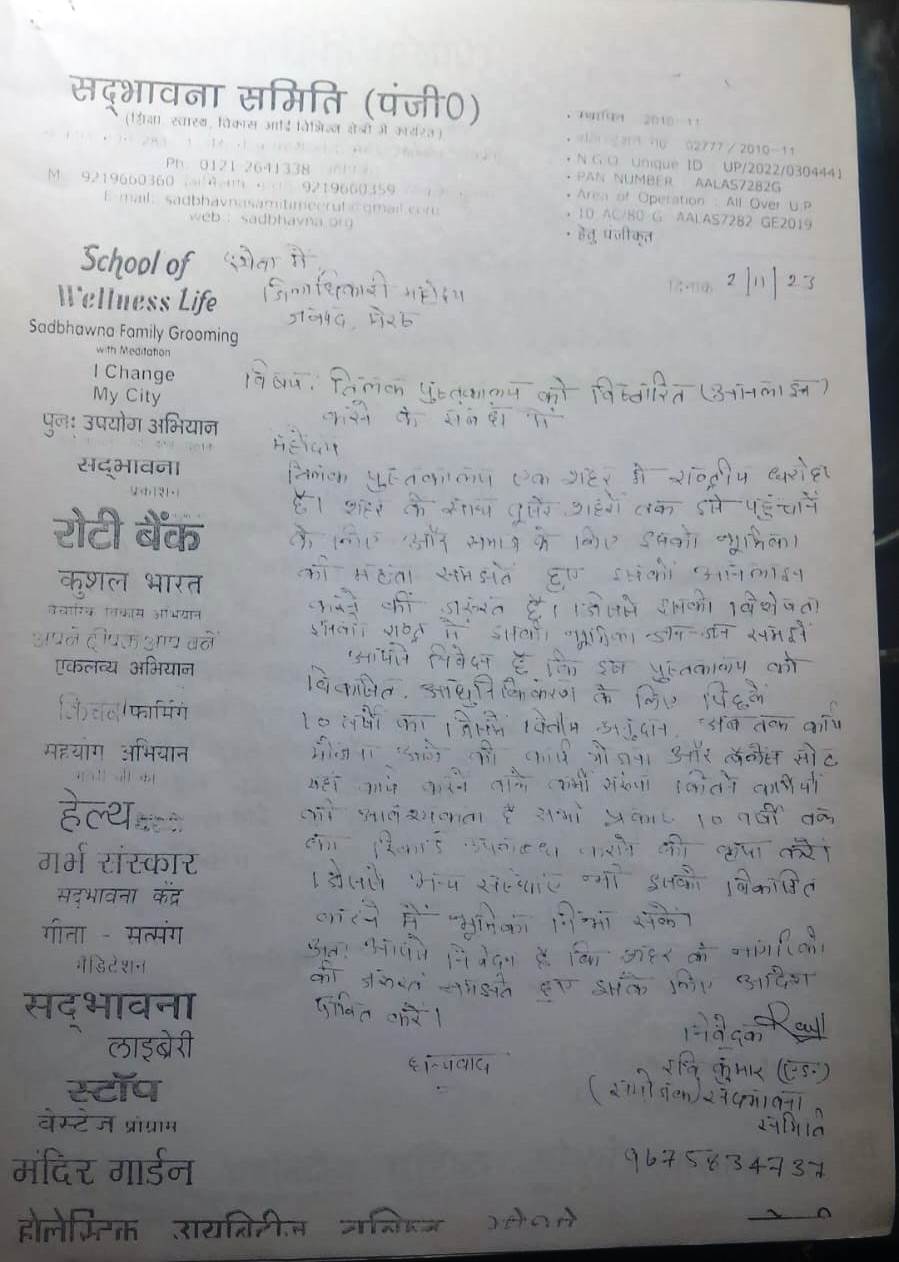 सद्‌भावना समिति (पंजी0)
(शिक्षा, स्वास्थ, विकास आदि विभिन्न क्षेत्रों में कार्यरत)
Ph. 0121-2641338
M. 9219660360 9219660359
E-mail: sadbhavnasamitimeerut@gmail.com
web.: sadbhavna.org
• स्थापित 2010-11
02777 / 2010-11
• N.G.O. Unique ID UP/2022/0304441
• PAN NUMBER AALAS7282G
• Area of Operation : All Over U.P.
• 10 AC/80 G AALAS7282 GE2019
• हेतु पंजीकृत
दिनांक 2/11/23
School of
Wellness Life
Sadbhawna Family Grooming
with Meditation
I Change
My City
पुनः उपयोग अभियान
सद्‌भावना
प्रकाशन
रोटी बैंक
कुशल भारत
वैचारिक विकास अभियान
अपने दीपक आप बनें
एकलव्य अभियान
किचन फार्मिंग
सहयोग अभियान
हेल्थ
गर्भ संस्कार
सद्‌भावना केंद्र
गीता - सत्संग
मेडिटेशन
सद्‌भावना
लाइब्रेरी
स्टॉप
वेस्टेज प्रोग्राम
मंदिर गार्डन
होलेस्टिक
सेवा में
जिलाधिकारी महोदय
जनपद, मेरठ
विषय: तिलक पुस्तकालय को विस्तारित (आनलाइन)
करने के संबंध में
महोदय
तिलक पुस्तकालय एक शहर में राष्ट्रीय धरोहर
है। शहर के साथ दूसरे शहरों तक इसे पहुंचाने
के लिए और समाज के लिए इसकी भूमिका
की महत्ता समझते हुए इसको आनलाइन
करने की जरूरत है। जिससे इसकी विशेषता
इसकी राष्ट्र में इसकी भूमिका जन-जन समझें
आपसे निवेदन है कि इस पुस्तकालय को
विकसित, आधुनिकिकरण के लिए पिछले
10 वर्षों का जिसमें वित्तीय अनुदान, अब तक कार्य
योजना आगे की कार्य योजना और बैलेंस सीट
यहां कार्य करने वाले कर्मी संख्या कितने कर्मियों
की आवश्यकता है सभी प्रकार 10 वर्षों तक
का रिकार्ड उपलब्ध कराने की कृपा करें।
जिससे अन्य संस्थाएं भी इसको विकसित
करने में भूमिका निभा सकें।
अतः आपसे निवेदन है कि शहर के नागरिकों
की जरूरत समझते हुए इसके लिए आदेश
पारित करें।
धन्यवाद
निवेदक
रवि कुमार
(संयोजक) सद्भावना
समिति
9675834737